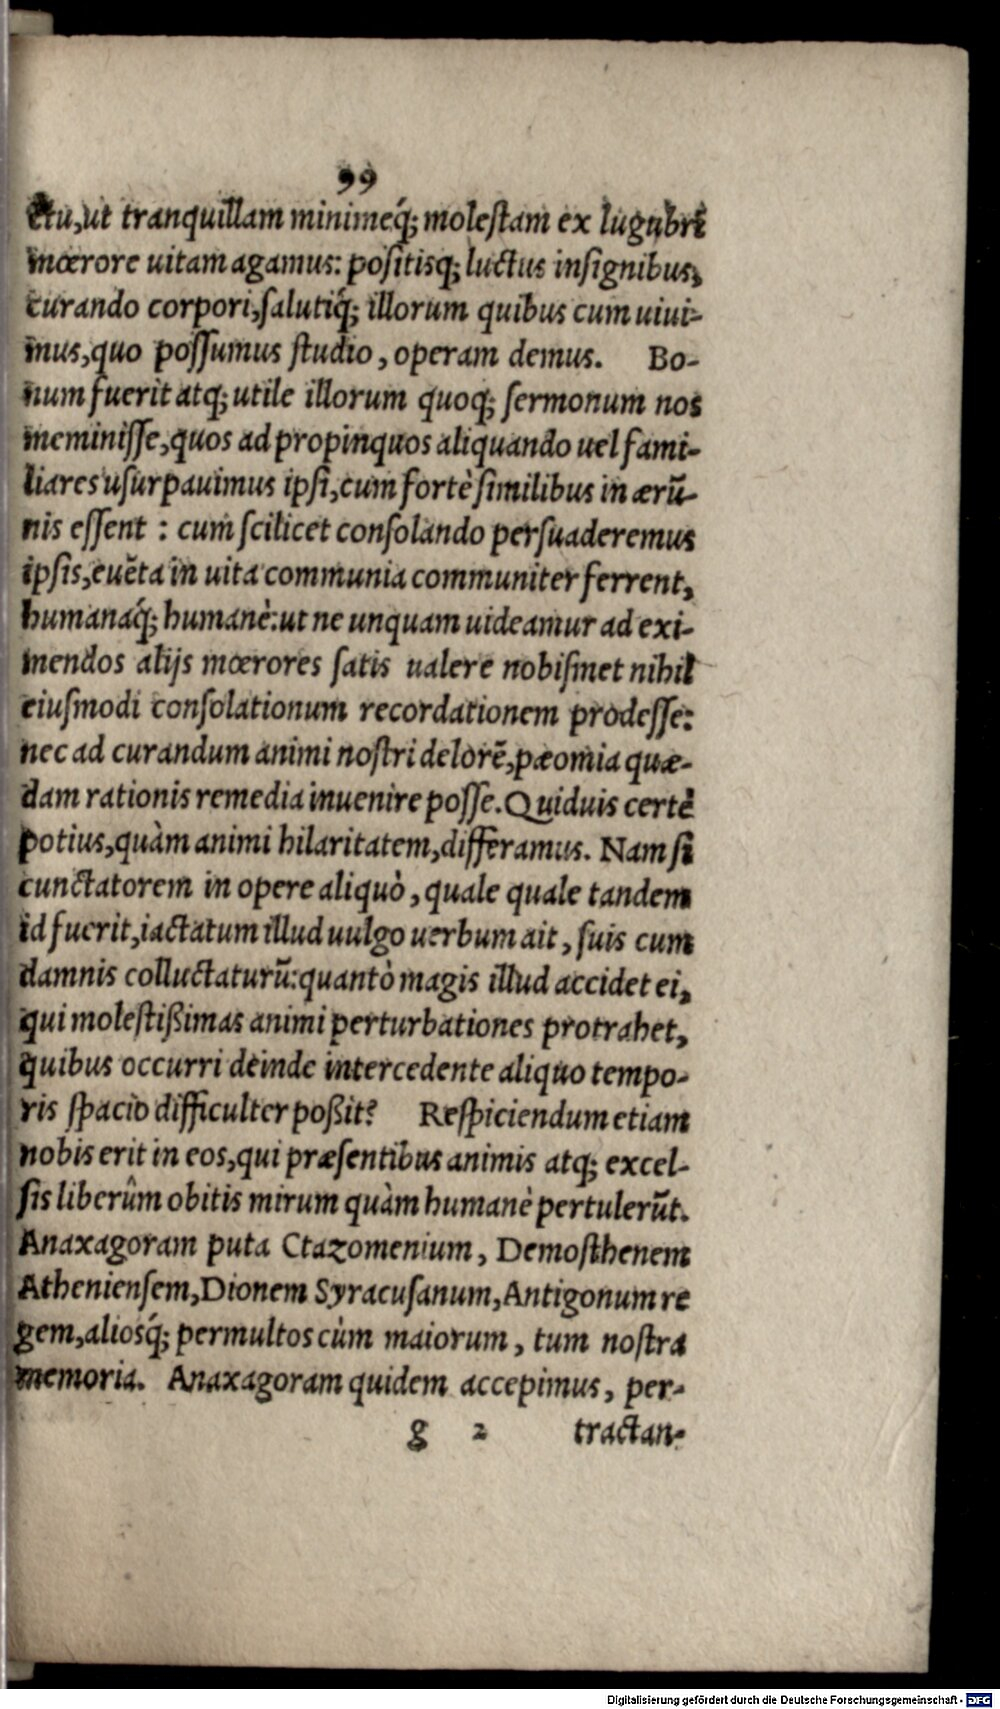 99
ctu, ut tranquillam minimeq́; molestam ex lugubri
mœrore uitam agamus: positisq; luctus insignibus,
curando corpori, salutiq́; illorum quibus cum uiui-
mus, quo possumus studio, operam demus. Bo-
num fuerit atq; utile illorum quoq; sermonum nos
meminisse, quos ad propinquos aliquando uel fami-
liares usurpauimus ipsi, cum fortè similibus in ærū-
nis essent : cum scilicet consolando persuaderemus
ipsis, euēta in uita communia communiter ferrent,
humanaq́; humanè: ut ne unquam uideamur ad exi-
mendos alijs mœrores satis ualere nobismet nihil
eiusmodi consolationum recordationem prodesse:
nec ad curandum animi nostri delorē, pæomia quæ-
dam rationis remedia inuenire posse. Quiduis certè
potius, quàm animi hilaritatem, differamus. Nam si
cunctatorem in opere aliquò, quale quale tandem
id fuerit, iactatum illud uulgo uerbum ait, suis cum
damnis colluctaturū: quantò magis illud accidet ei,
qui molestißimas animi perturbationes protrahet,
quibus occurri deinde intercedente aliquo tempo-
ris spacio difficulter poßit? Respiciendum etiam
nobis erit in eos, qui præsentibus animis atq; excel-
sis liberûm obitis mirum quàm humanè pertulerūt.
Anaxagoram puta Ctazomenium, Demosthenem
Atheniensem, Dionem Syracusanum, Antigonum re
gem, aliosq́; permultos cùm maiorum, tum nostra
memoria. Anaxagoram quidem accepimus, per-
g 2 tractan-
Digitalisierung gefördert durch die Deutsche Forschungsgemeinschaft - DFG